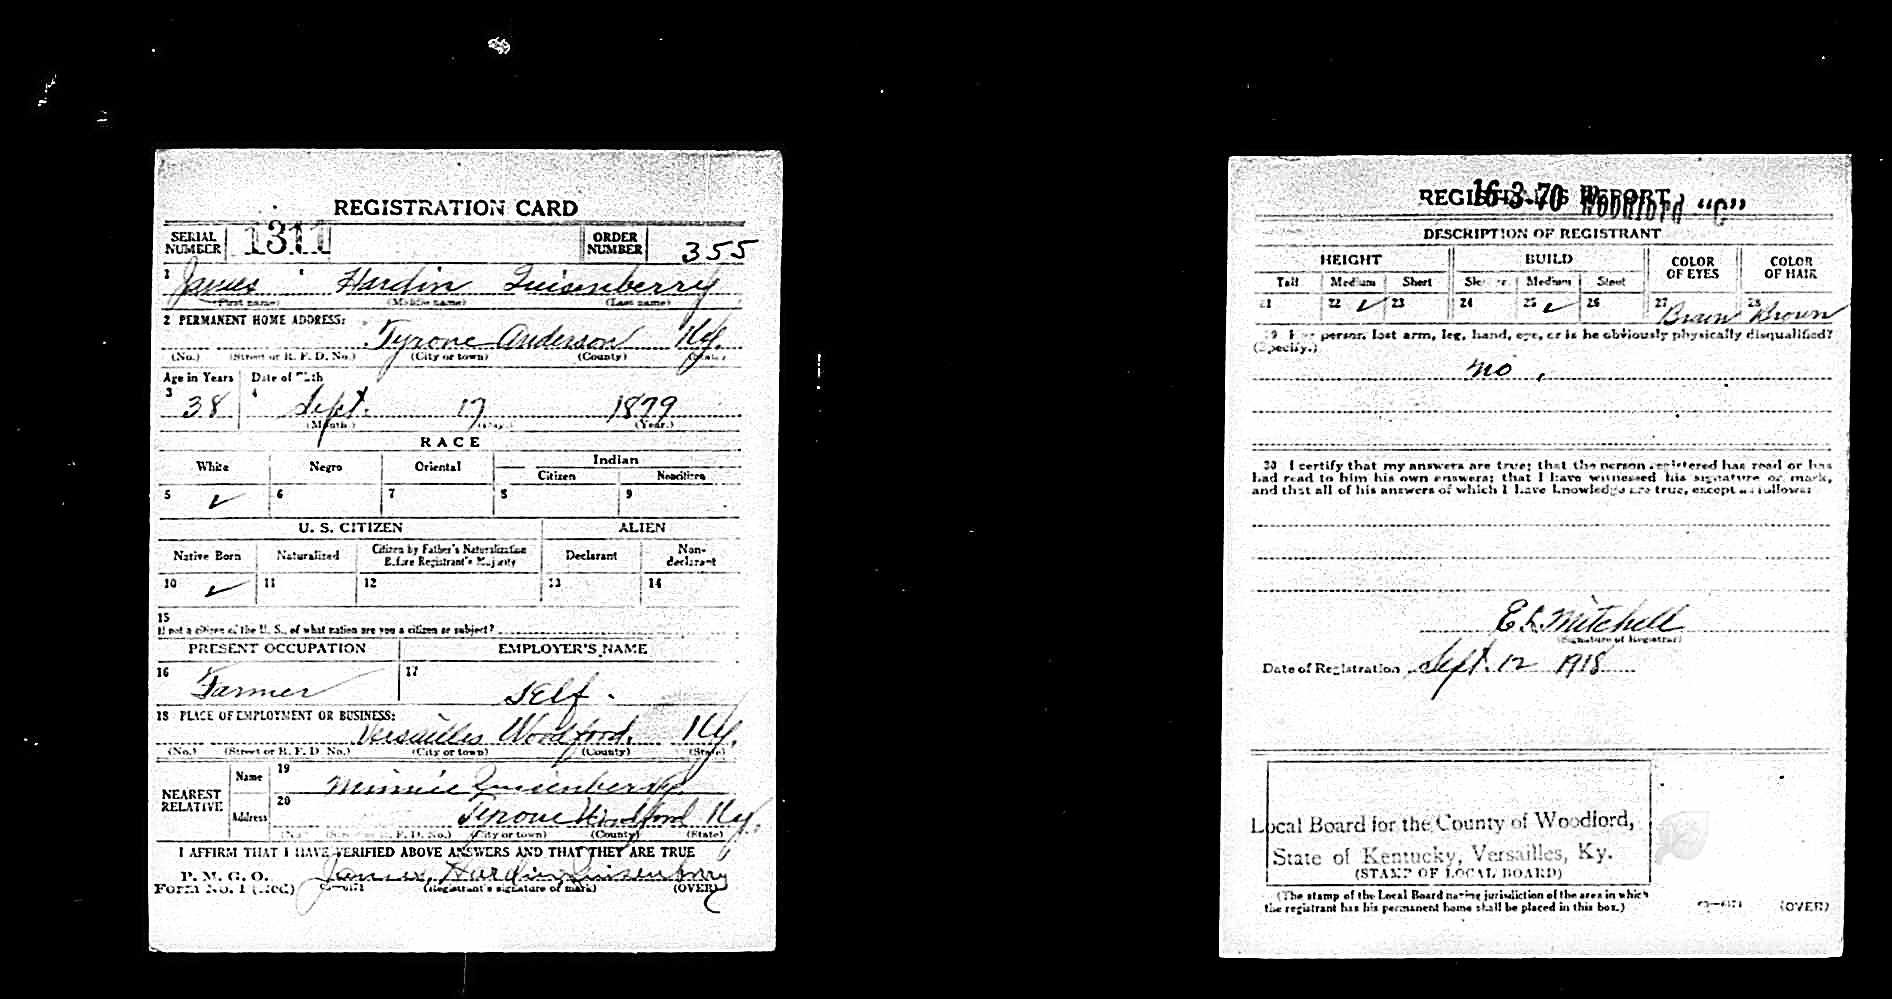 REGISTRATION CARD
SERIAL NUMBER 1311 ORDER NUMBER 355
1 James Hardin Quisenberry
(First name) (Middle name) (Last name)
2 PERMANENT HOME ADDRESS:
Tyrone Anderson Ky.
(No.) (Street or R. F. D. No.) (City or town) (County) (State)
Age in Years Date of Birth
3 38 4 Sept. 17 1879
(Month.) (Day.) (Year.)
RACE
White Negro Oriental Indian
Citizen Noncitizen
5 ✓ 6 7 8 9
U. S. CITIZEN ALIEN
Native Born Naturalized Citizen by Father's Naturalization Before Registrant's Majority Declarant Non-declarant
10 ✓ 11 12 13 14
15
If not a citizen of the U. S., of what nation are you a citizen or subject?
PRESENT OCCUPATION EMPLOYER'S NAME
16 Farmer 17 Self.
18 PLACE OF EMPLOYMENT OR BUSINESS:
Versailles Woodford. Ky.
(No.) (Street or R. F. D. No.) (City or town) (County) (State)
NEAREST RELATIVE
Name 19 Minnie Quisenberry
Address 20 Tyrone Woodford Ky.
(No.) (Street or R. F. D. No.) (City or town) (County) (State)
I AFFIRM THAT I HAVE VERIFIED ABOVE ANSWERS AND THAT THEY ARE TRUE
P. M. G. O.
Form No. 1 (Red) James Hardin Quisenberry
(Registrant's signature or mark) (OVER)
REGISTRAR'S REPORT
16-3-70 Woodford "C"
DESCRIPTION OF REGISTRANT
HEIGHT BUILD COLOR OF EYES COLOR OF HAIR
Tall Medium Short Slender Medium Stout
21 22 ✓ 23 24 25 ✓ 26 27 Brown 28 Brown
29 Has person lost arm, leg, hand, eye, or is he obviously physically disqualified?
(Specify.)
no.
30 I certify that my answers are true; that the person registered has read or has
had read to him his own answers; that I have witnessed his signature or mark,
and that all of his answers of which I have knowledge are true, except as follows:
E L Mitchell
(Signature of Registrar)
Date of Registration Sept. 12 1918
Local Board for the County of Woodford,
State of Kentucky, Versailles, Ky.
(STAMP OF LOCAL BOARD)
(The stamp of the Local Board having jurisdiction of the area in which
the registrant has his permanent home shall be placed in this box.)
(OVER)